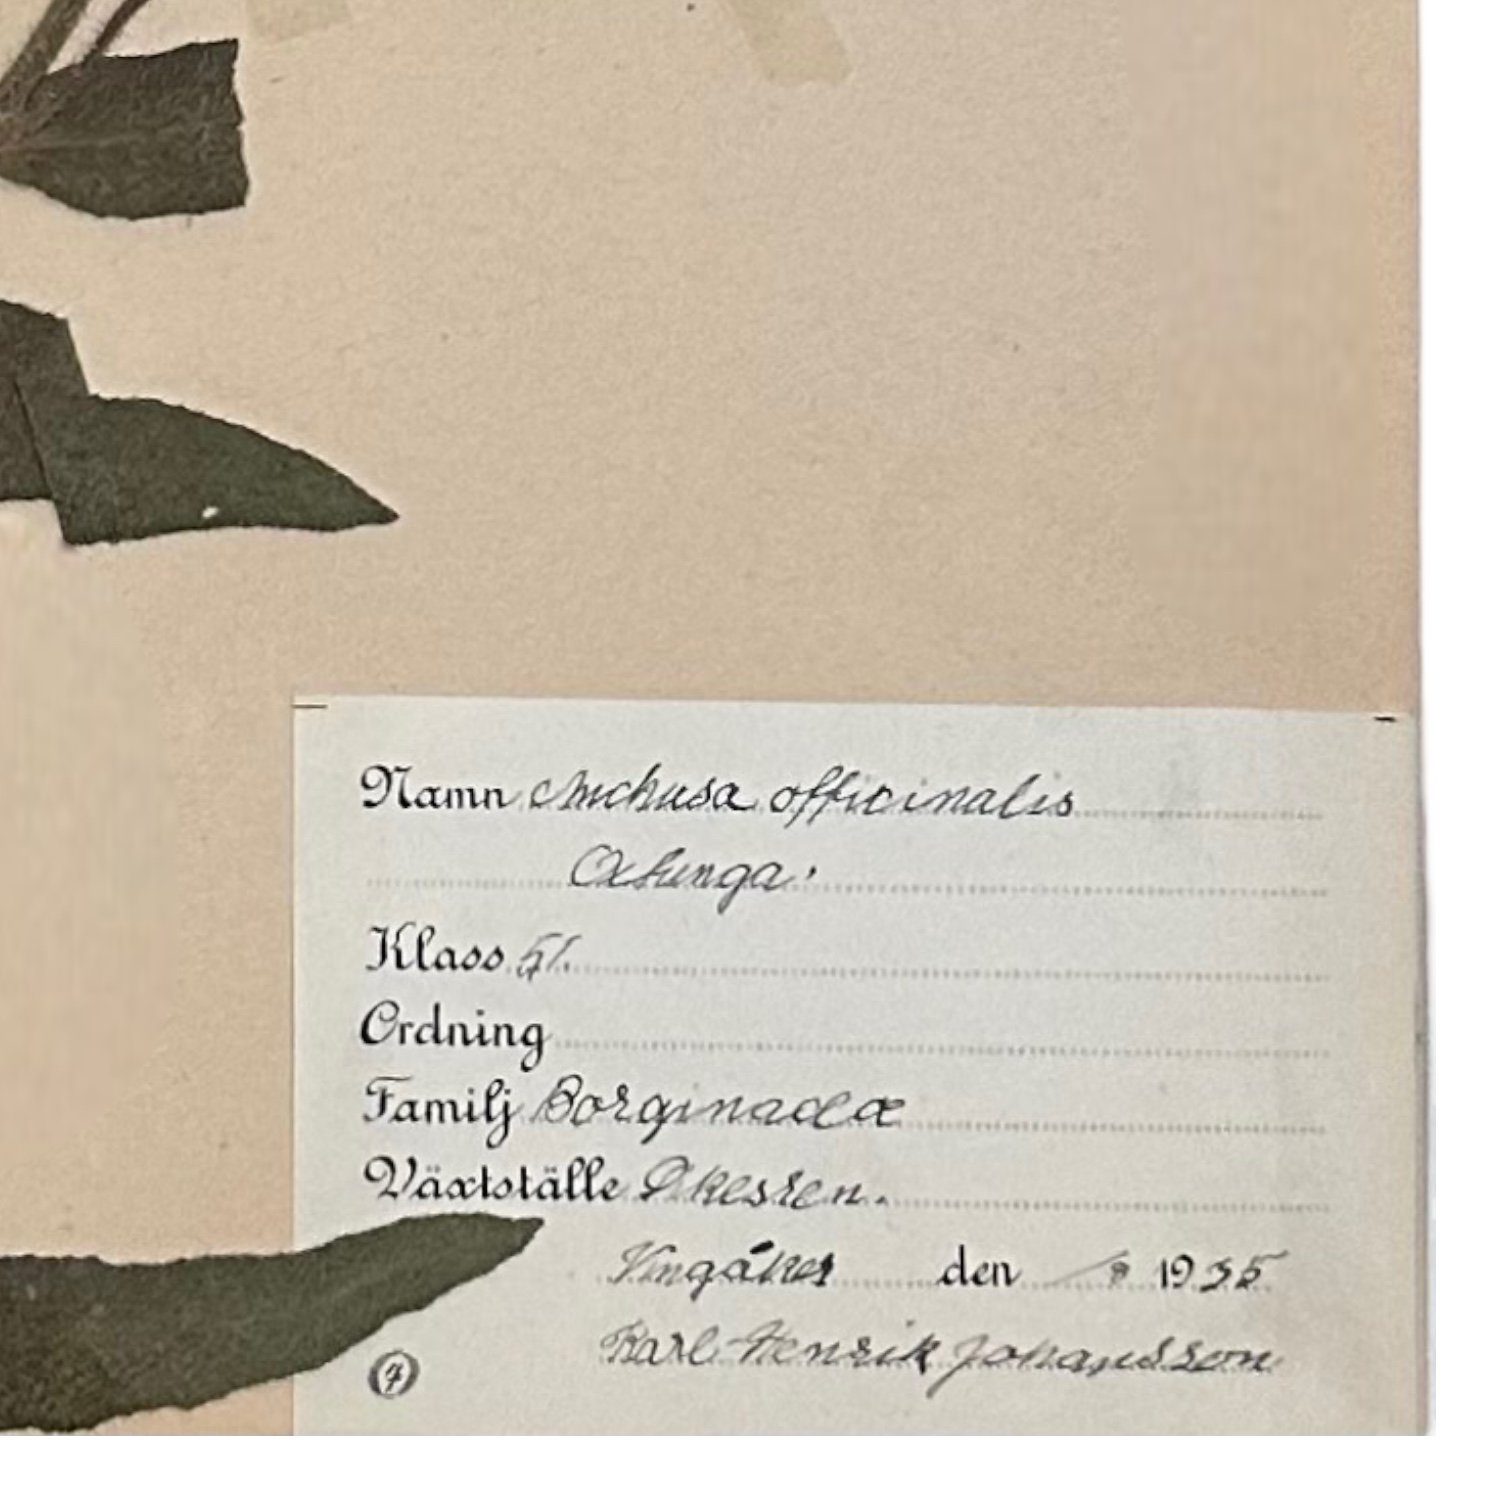 Namn Anchusa officinalis
Oxtunga.
Klass 51.
Ordning
Familj Borginacéæ
Växtställe
Vingåker den / 8 1935
Karl-Henrik Johansson
4